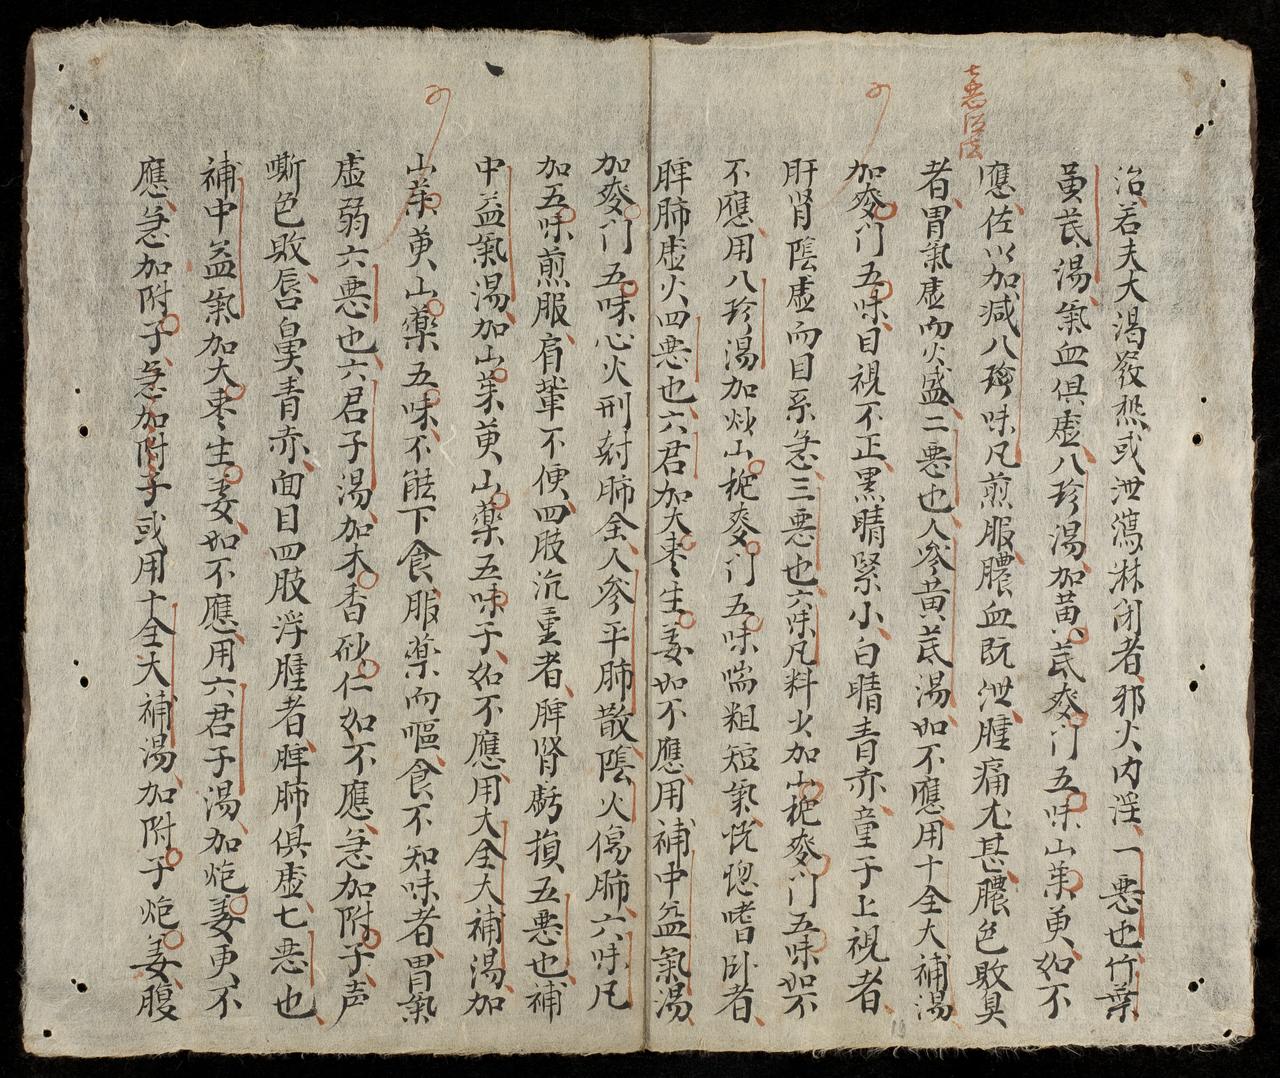 七悪治法
治若夫大渴發熱或泄瀉淋闭者邪火内淫一悪也竹葉
黃芪湯氣血俱虛八珍湯加黃芪麥门五味山茱萸如不
應佐以加减八珍味凡煎服膿血既泄腫痛尤甚膿色敗臭
者胃氣虛而火盛二悪也人参黄芪湯如不應用十全大補湯
加麥门五味目視不正黑睛緊小白睛青赤童子上視者
肝肾陰虛而目系急三悪也六味凡料火加山梔麥门五味如不
不應用八珍湯加炒山梔麥门五味喘粗短氣恍惚嗜卧者
脾肺虛火四悪也六君加大枣生姜如不應用補中益氣湯
加麥门五味心火刑尅肺全人参平肺散陰火傷肺六味凡
加五味煎服肩輩不便四肢沉重者脾肾虧損五悪也補
中益氣湯加山茱萸山藥五味子如不應用大全大補湯加
山茱萸山藥五味不能下食服藥而嘔食不知味者胃氣
虛弱六悪也六君子湯加木香砂仁如不應急加附子声
嘶色敗唇鼻青赤面目四肢浮腫者脾肺俱虛七悪也
補中益氣加大枣生姜如不應用六君子湯加炮姜更不
應急加附子急加附子或用十全大補湯加附子炮姜腹